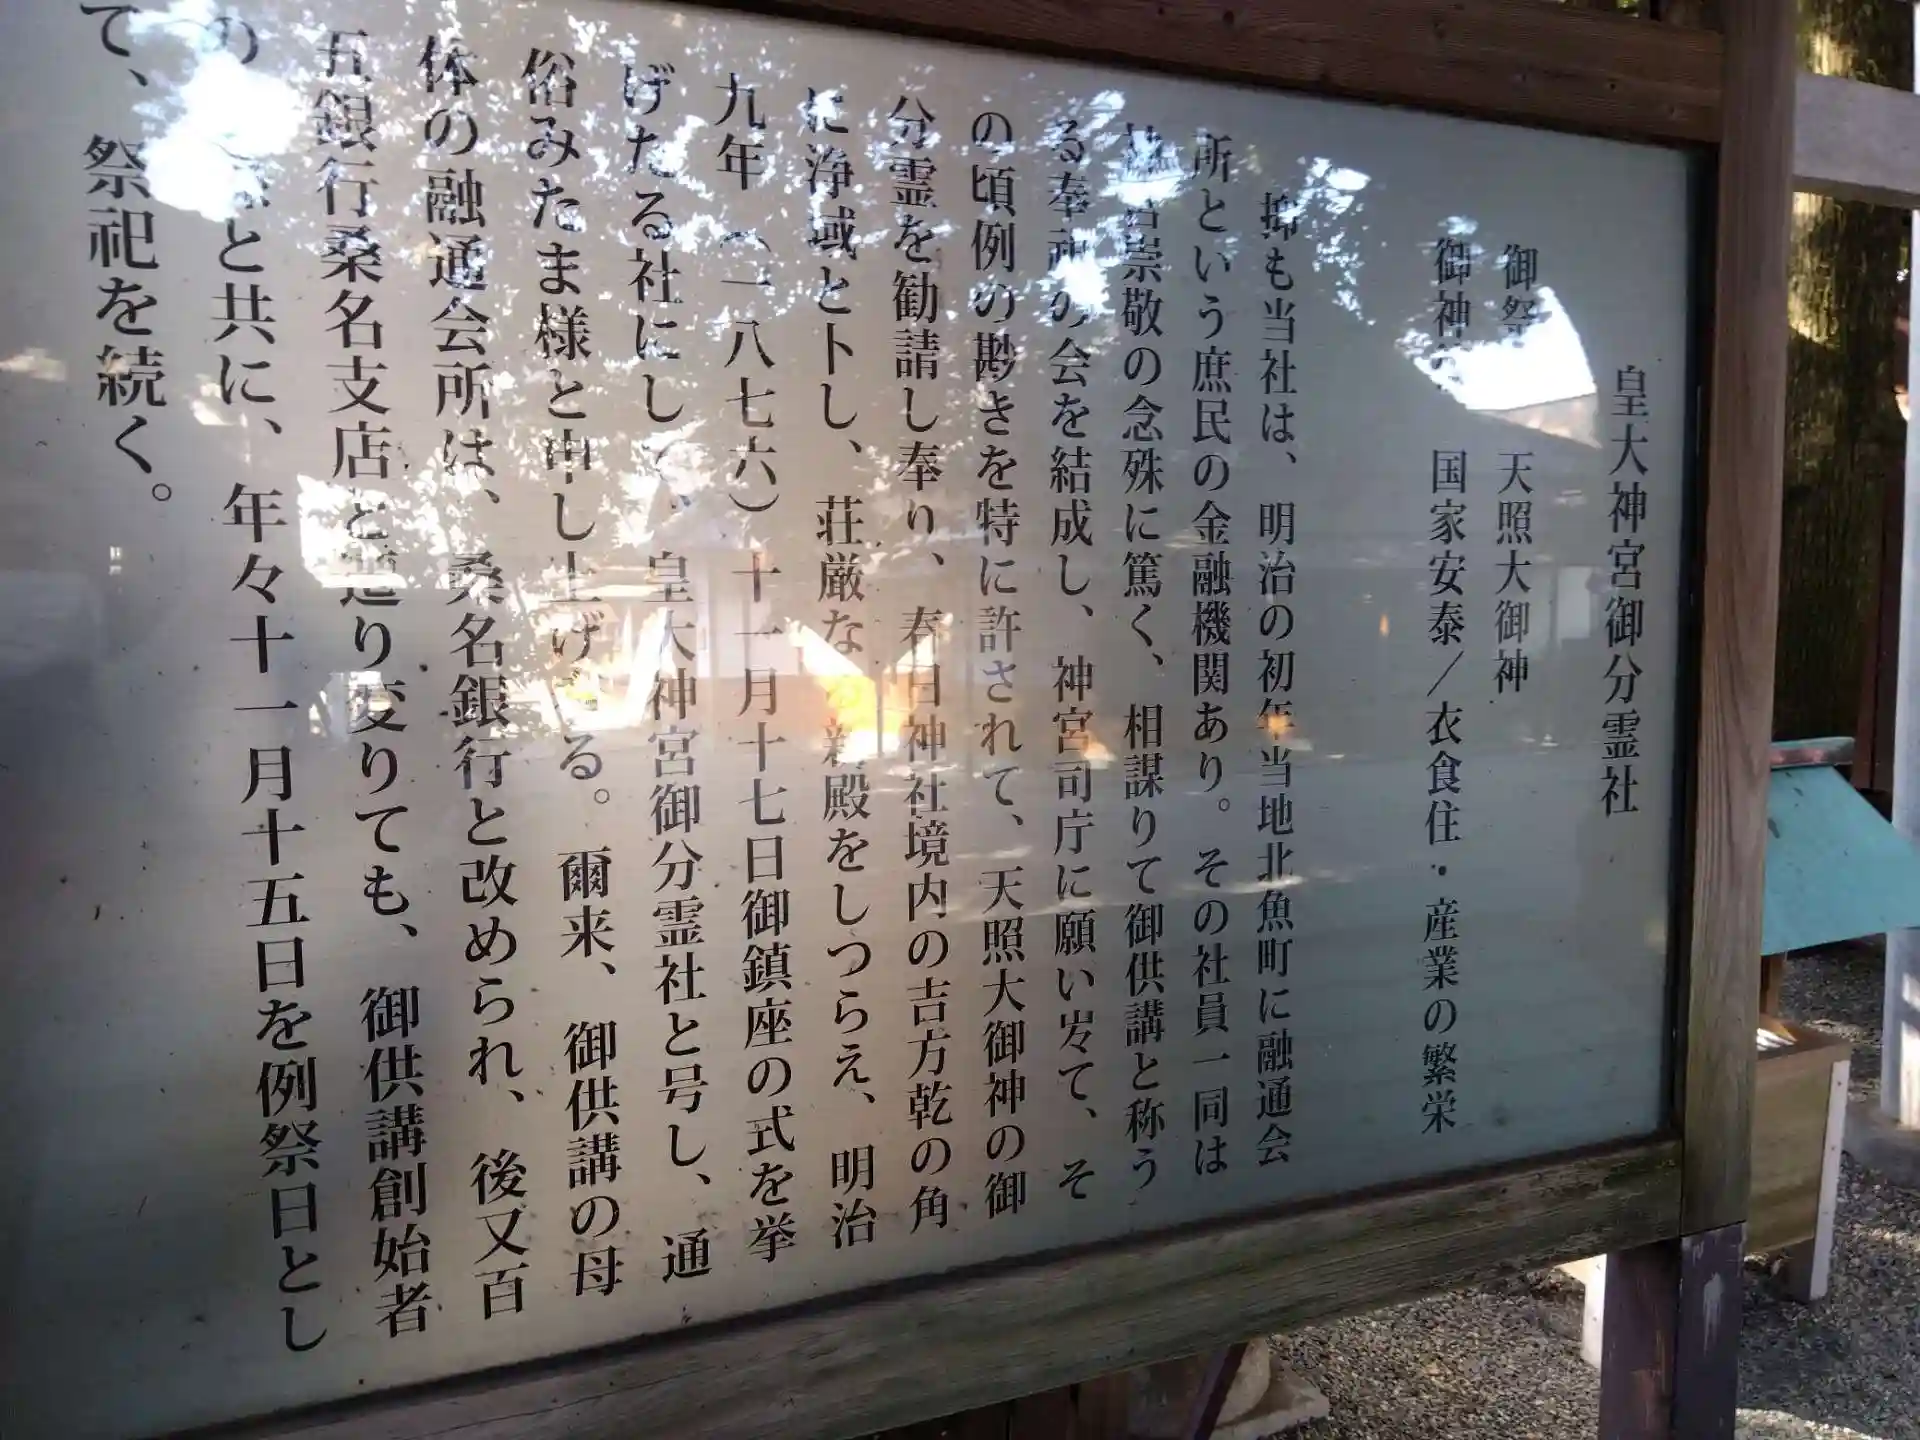 皇大神宮御分霊社
御祭 天照大御神
御神 国家安泰／衣食住・産業の繁栄
抑も当社は、明治の初年当地北魚町に融通会
所という庶民の金融機関あり。その社員一同は
崇敬の念殊に篤く、相謀りて御供講と称う
る奉祀の会を結成し、神宮司庁に願い岁て、そ
の頃例の尠きを特に許されて、天照大御神の御
分霊を勧請し奉り、春日神社境内の吉方乾の角
に浄域と卜し、荘厳な 新殿をしつらえ、明治
九年（一八七六）十一月十七日御鎮座の式を挙
げたる社にして、皇大神宮御分霊社と号し、通
俗みたま様と申し上げる。爾来、御供講の母
体の融通会所は、桑名銀行と改められ、後又百
五銀行桑名支店と遷り変りても、御供講創始者
の と共に、年々十一月十五日を例祭日とし
て、祭祀を続く。